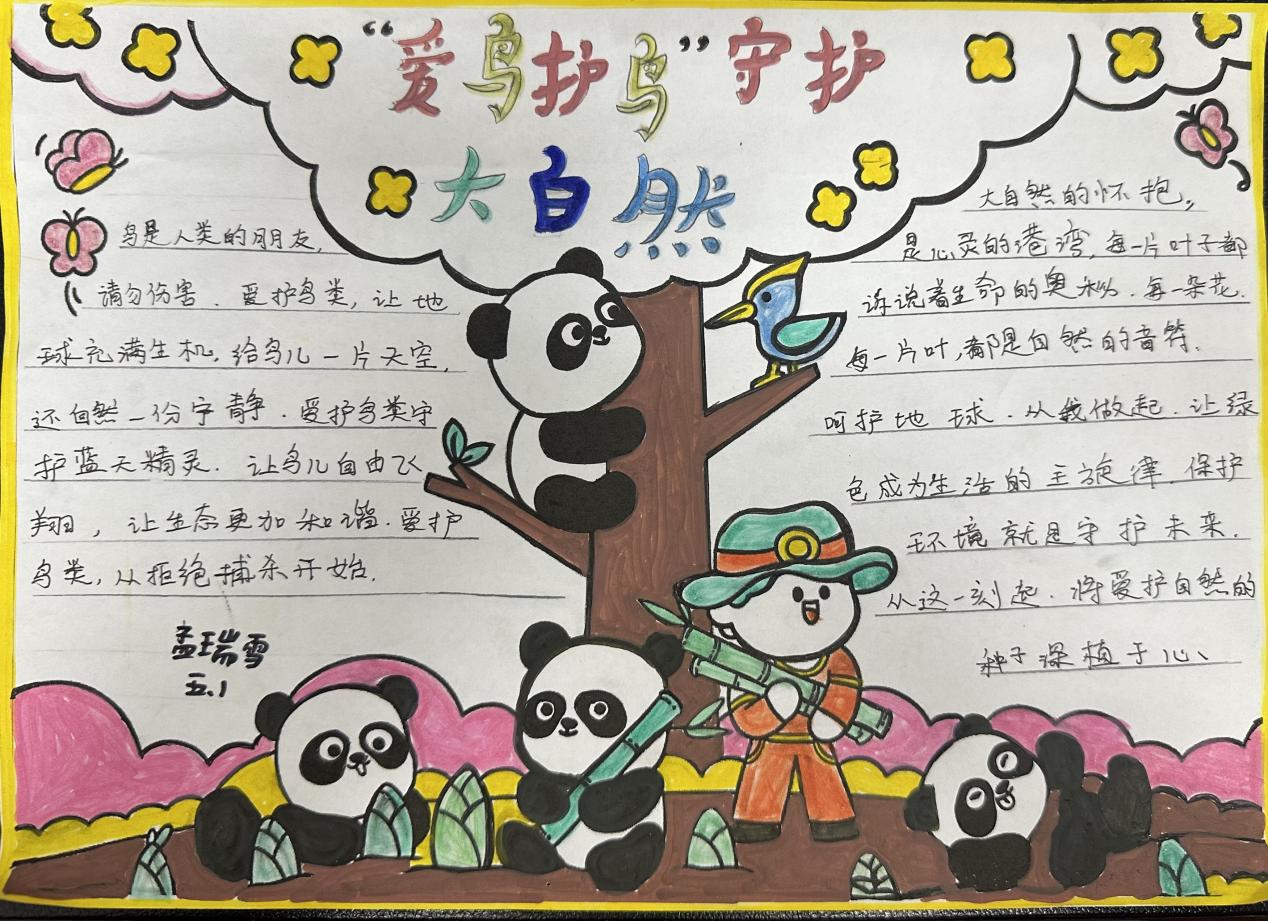 “爱鸟护鸟”守护
大自然
鸟是人类的朋友,
请勿伤害.爱护鸟类,让地
球充满生机.给鸟儿一片天空,
还自然一份宁静.爱护鸟类守
护蓝天精灵.让鸟儿自由飞
翔,让生态更加和谐.爱护
鸟类,从拒绝捕杀开始.
孟瑞雪
五.1
大自然的怀抱,
是心灵的港湾,每一片叶子都
诉说着生命的奥秘.每一朵花.
每一片叶,都是自然的音符.
呵护地球.从我做起.让绿
色成为生活的主旋律.保护
环境就是守护未来.
从这一刻起.将爱护自然的
种子深植于心、